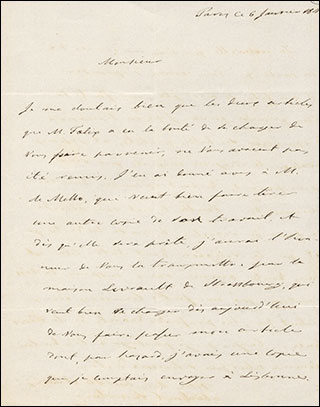 Paris ce 6 Janvier
Monsieur
Je me doutais bien que les deux articles
que M. a eu la bonté de se charger de
Vous faire parvenir, ne Vous avaient pas
été remis. J'en ai donné avis à M.
de Mello, que veut bien faire tirer
une autre copie de son travail, et
dès qu'elle sera prête, j'aurai l'hon-
neur de Vous la transmettre par la
maison Levrault de Strasbourg, qui
veut bien se charger dès aujourd'hui
de Vous faire passer mon article
dont, par hazard, j'avais une copie
que je comptais envoyer à Lisbonne.